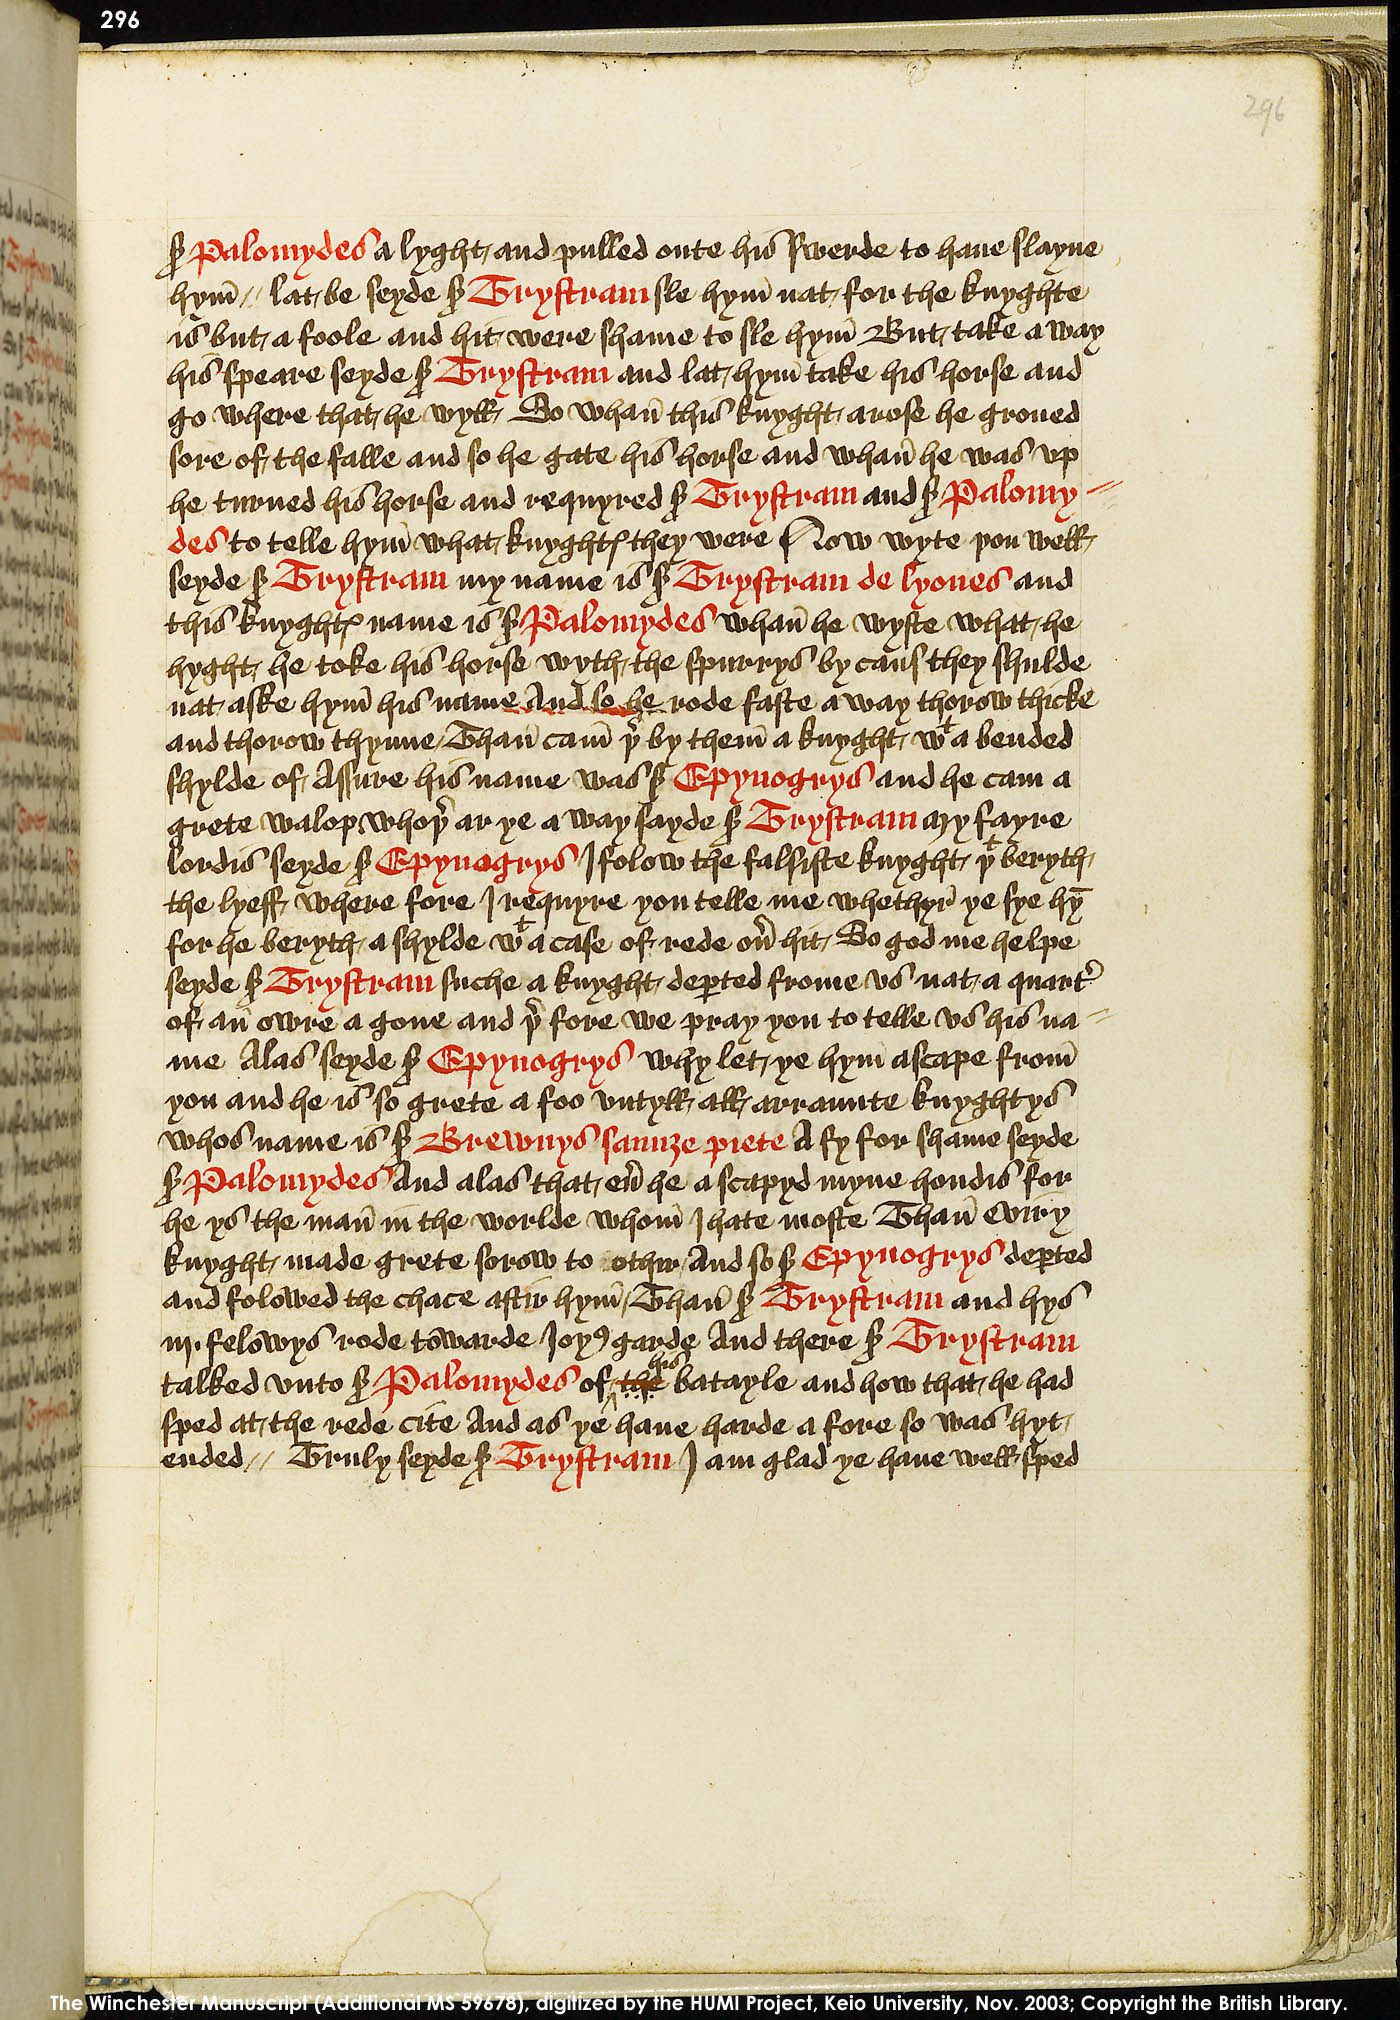 296
296
Sr Palomydes a lyght and pulled oute his swerde to haue slayne
hym̄ // lat be seyde sr Trystram sle hym̄ nat for the knyghte
is but a foole and hit were shame to sle hym̄ But take a way
his speare seyde sr Trystram and lat hym̄ take his horse and
go where that he wyll So whan̄ this knyght arose he groned
sore of the falle and so he gate his horse and whan̄ he was vp
he turned his horse and requyred sr Trystram and sr Palomy //
des to telle hym̄ what knyghtꝭ they were Now wyte you well
seyde sr Trystram my name is sr Trystram de lyones and
this knyghtꝭ name is sr Palomydes whan̄ he wyste what he
hyght he toke his horse wyth the spurrys by caus they shulde
nat aske hym̄ his name And so he rode faste a way thorow thicke
and thorow thynne / Than̄ cam̄ þr by them̄ a knyght wt a bended
shylde of Assure his name was sr Epynogrys and he cam a
grete walop whoþr ar ye a way sayde sr Trystram my fayre
lordis seyde sr Epynogrys I folow the falsiste knyght þt beryth
the lyeff where fore I requyre you telle me whethyr ye sye hȳ
for he beryth a shylde wt a case of rede ouͬ hit So god me helpe
seyde sr Trystram suche a knyght deꝑted frome vs nat a quartͬ
of an̄ owre a gone and þr fore we pray you to telle vs his na //
me Alas seyde sr Epynogrys why let ye hym ascape from̄
you and he is so grete a foo vntyll all arraunte knyghtys
whos name is sr Brewnys saunze piete A fy for shame seyde
sr Palomydes And alas that euͬ he a scapyd myne hondis for
he ys the man̄ in the worlde whom̄ I hate moste Than̄ eviry
knyght made grete sorow to othir And so sr Epynogrys deꝑted
and folowed the chace aftir hym̄ / Than̄ sr Trystram and hys
iij felowys rode towarde Ioyꝰ garde And there sr Trystram
talked vnto sr Palomydes of the his batayle and how that he had
sped at the rede cite And as ye haue harde a fore so was hyt
ended // Truly seyde sr Trystram I am glad ye haue well sped
The Winchester Manuscript (Additional MS 59678), digitized by the HUMI Project, Keio University, Nov. 2003; Copyright the British Library.